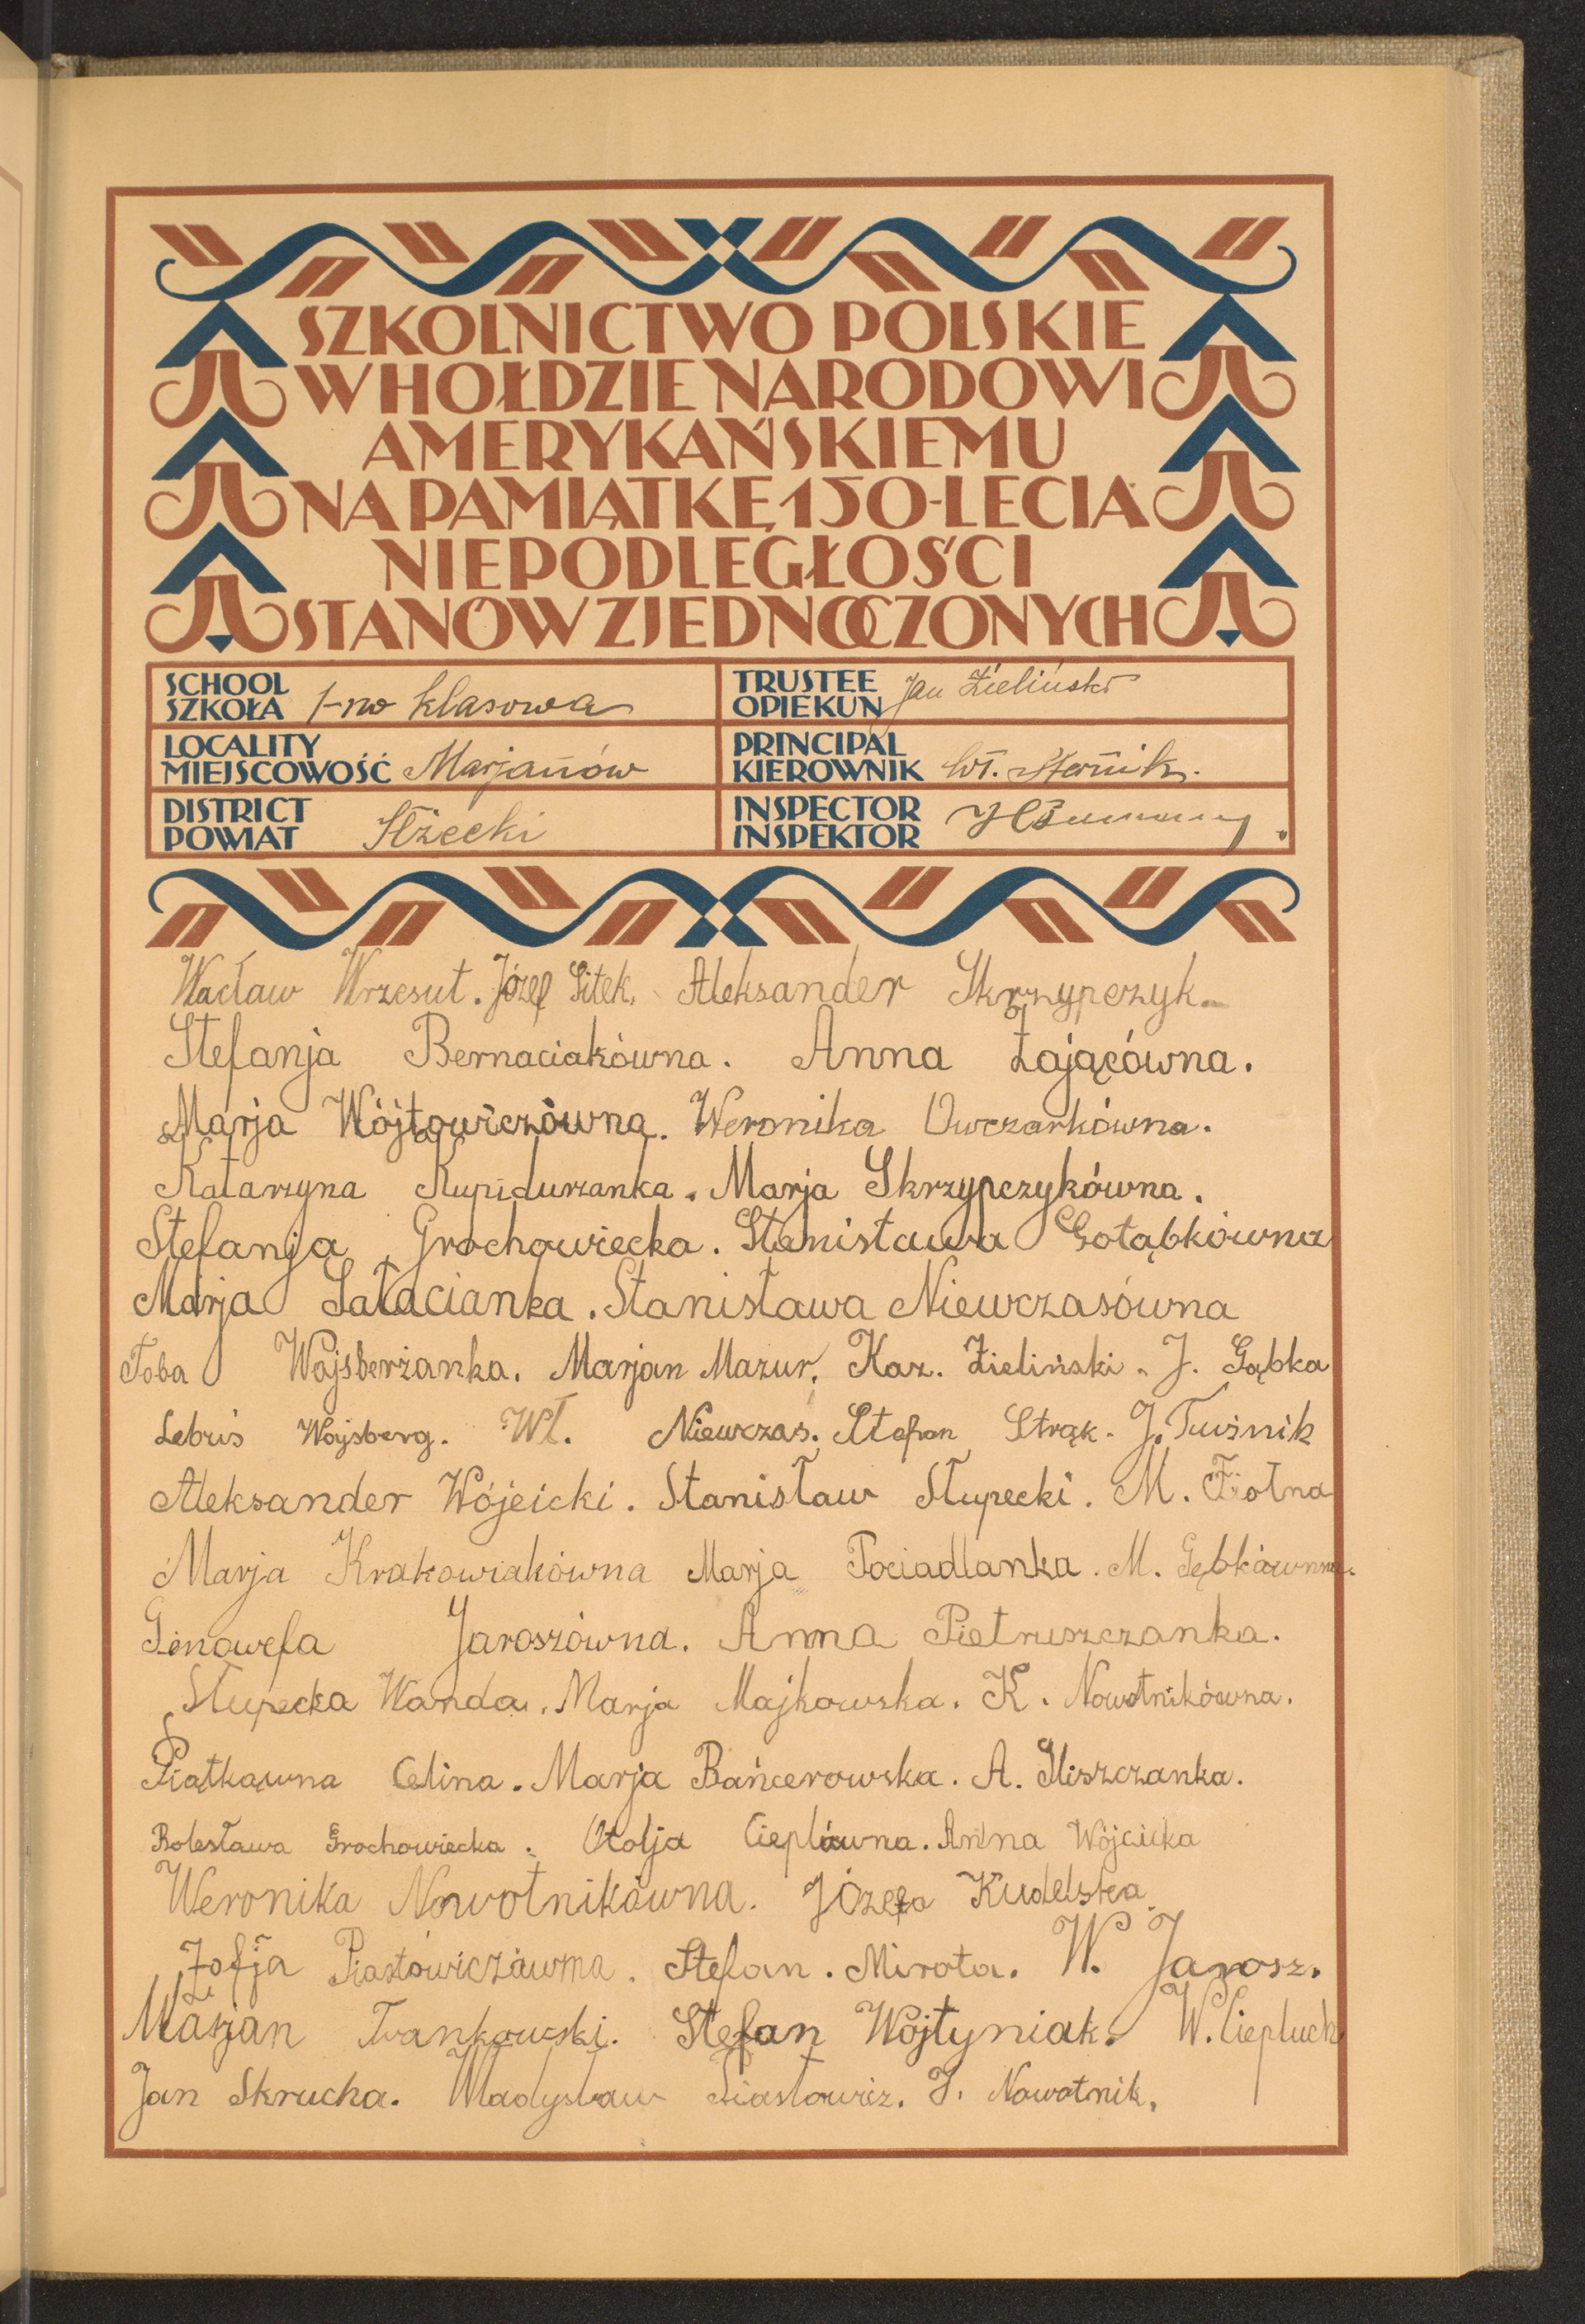 SZKOLNICTWO POLSKIE
W HOŁDZIE NARODOWI
AMERYKAŃSKIEMU
NA PAMIĄTKĘ 150-LECIA
NIEPODLEGŁOŚCI
STANÓW ZJEDNOCZONYCH
SCHOOL
SZKOŁA 1-no klasowa
TRUSTEE
OPIEKUN Jan Zieliński
LOCALITY
MIEJSCOWOŚĆ Marjanów
PRINCIPAL
KIEROWNIK Wł.
DISTRICT
POWIAT Iłżecki
INSPECTOR
INSPEKTOR
Wacław Wrzesut. Józef Sitek. Aleksander Skrzypczyk.
Stefanja Bernaciakówna. Anna Łającówna.
Marja Wójtowiczówna. Weronika Owczarkówna.
Katarzyna Kupidurzanka. Marja Skrzypczykówna.
Stefanja Grochowiecka. Stanisława Gołąbkówna
Marja Sałacianka. Stanisława Niewczasówna
Toba Wajsberżanka. Marjan Mazur. Kaz. Zieliński. J. Gąbka
Lebuś Wajsberg. Wł. Niewczas. Stefan Strąk. J. Tuźnik
Aleksander Wójcicki. Stanisław Słupecki. M. Fiołna
Marja Krakowiakówna Marja Pociadlanka. M. Gębkówna.
Genowefa Jaroszówna. Anna Pietruszczanka.
Słupecka Wanda. Marja Majkowska. K. Nowotnikówna.
Piątkowna Celina. Marja Bańcerowska. A. Gliszczanka.
Bolesława Grochowiecka. Otolja Cieplówna. Anna Wójcicka
Weronika Nowotnikówna. Józefa Kudelska.
Zofja Piastowiczówna. Stefan. Mirota. W. Jarosz.
Marjan Iwankowski. Stefan Wójtyniak. W. Ciepluch
Jan Skrucha. Władysław Piastowicz. J. Nowotnik.